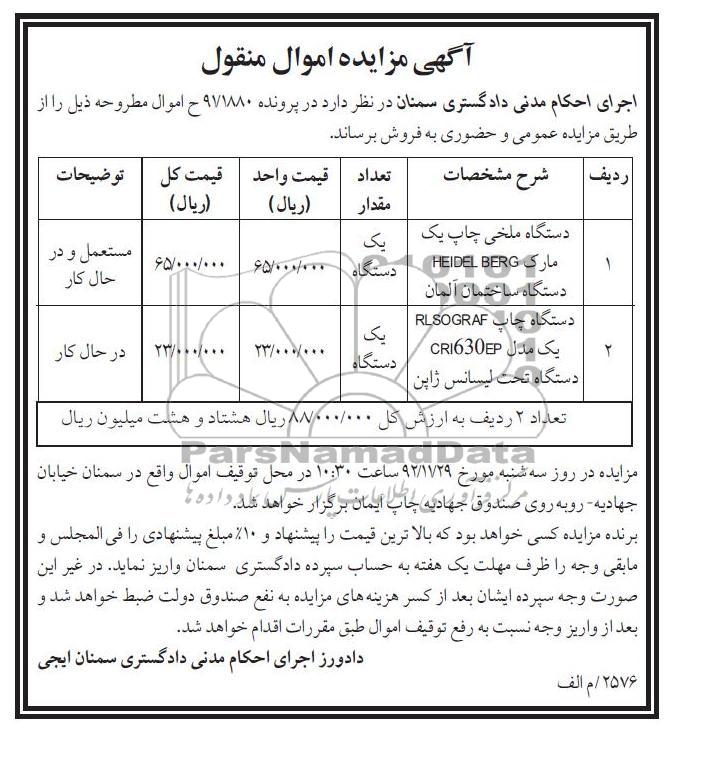 آگهی مزایده اموال منقول
اجرای احکام مدنی دادگستری سمنان در نظر دارد در پرونده ۹۷/۱۸۸۰ ح اموال مطروحه ذیل را از
طریق مزایده عمومی و حضوری به فروش برساند.
ردیف شرح مشخصات تعداد مقدار قیمت واحد (ریال) قیمت کل (ریال) توضیحات
۱ دستگاه ملخی چاپ یک مارک HEIDEL BERG دستگاه ساختمان آلمان یک دستگاه ۶۵/۰۰۰/۰۰۰ ۶۵/۰۰۰/۰۰۰ مستعمل و در حال کار
۲ دستگاه چاپ RLSOGRAF یک مدل CRI630EP دستگاه تحت لیسانس ژاپن یک دستگاه ۲۳/۰۰۰/۰۰۰ ۲۳/۰۰۰/۰۰۰ در حال کار
تعداد ۲ ردیف به ارزش کل ۸۸/۰۰۰/۰۰۰ ریال هشتاد و هشت میلیون ریال
ParsNamadData
مزایده در روز سه شنبه مورخ ۹۲/۱۱/۲۹ ساعت ۱۰:۳۰ در محل توقیف اموال واقع در سمنان خیابان
جهادیه- روبه روی صندوق جهادیه چاپ ایمان برگزار خواهد شد.
برنده مزایده کسی خواهد بود که بالا ترین قیمت را پیشنهاد و ۱۰٪ مبلغ پیشنهادی را فی المجلس و
مابقی وجه را ظرف مهلت یک هفته به حساب سپرده دادگستری سمنان واریز نماید. در غیر این
صورت وجه سپرده ایشان بعد از کسر هزینه های مزایده به نفع صندوق دولت ضبط خواهد شد و
بعد از واریز وجه نسبت به رفع توقیف اموال طبق مقررات اقدام خواهد شد.
دادورز اجرای احکام مدنی دادگستری سمنان ایجی
۲۵۷۶/م الف